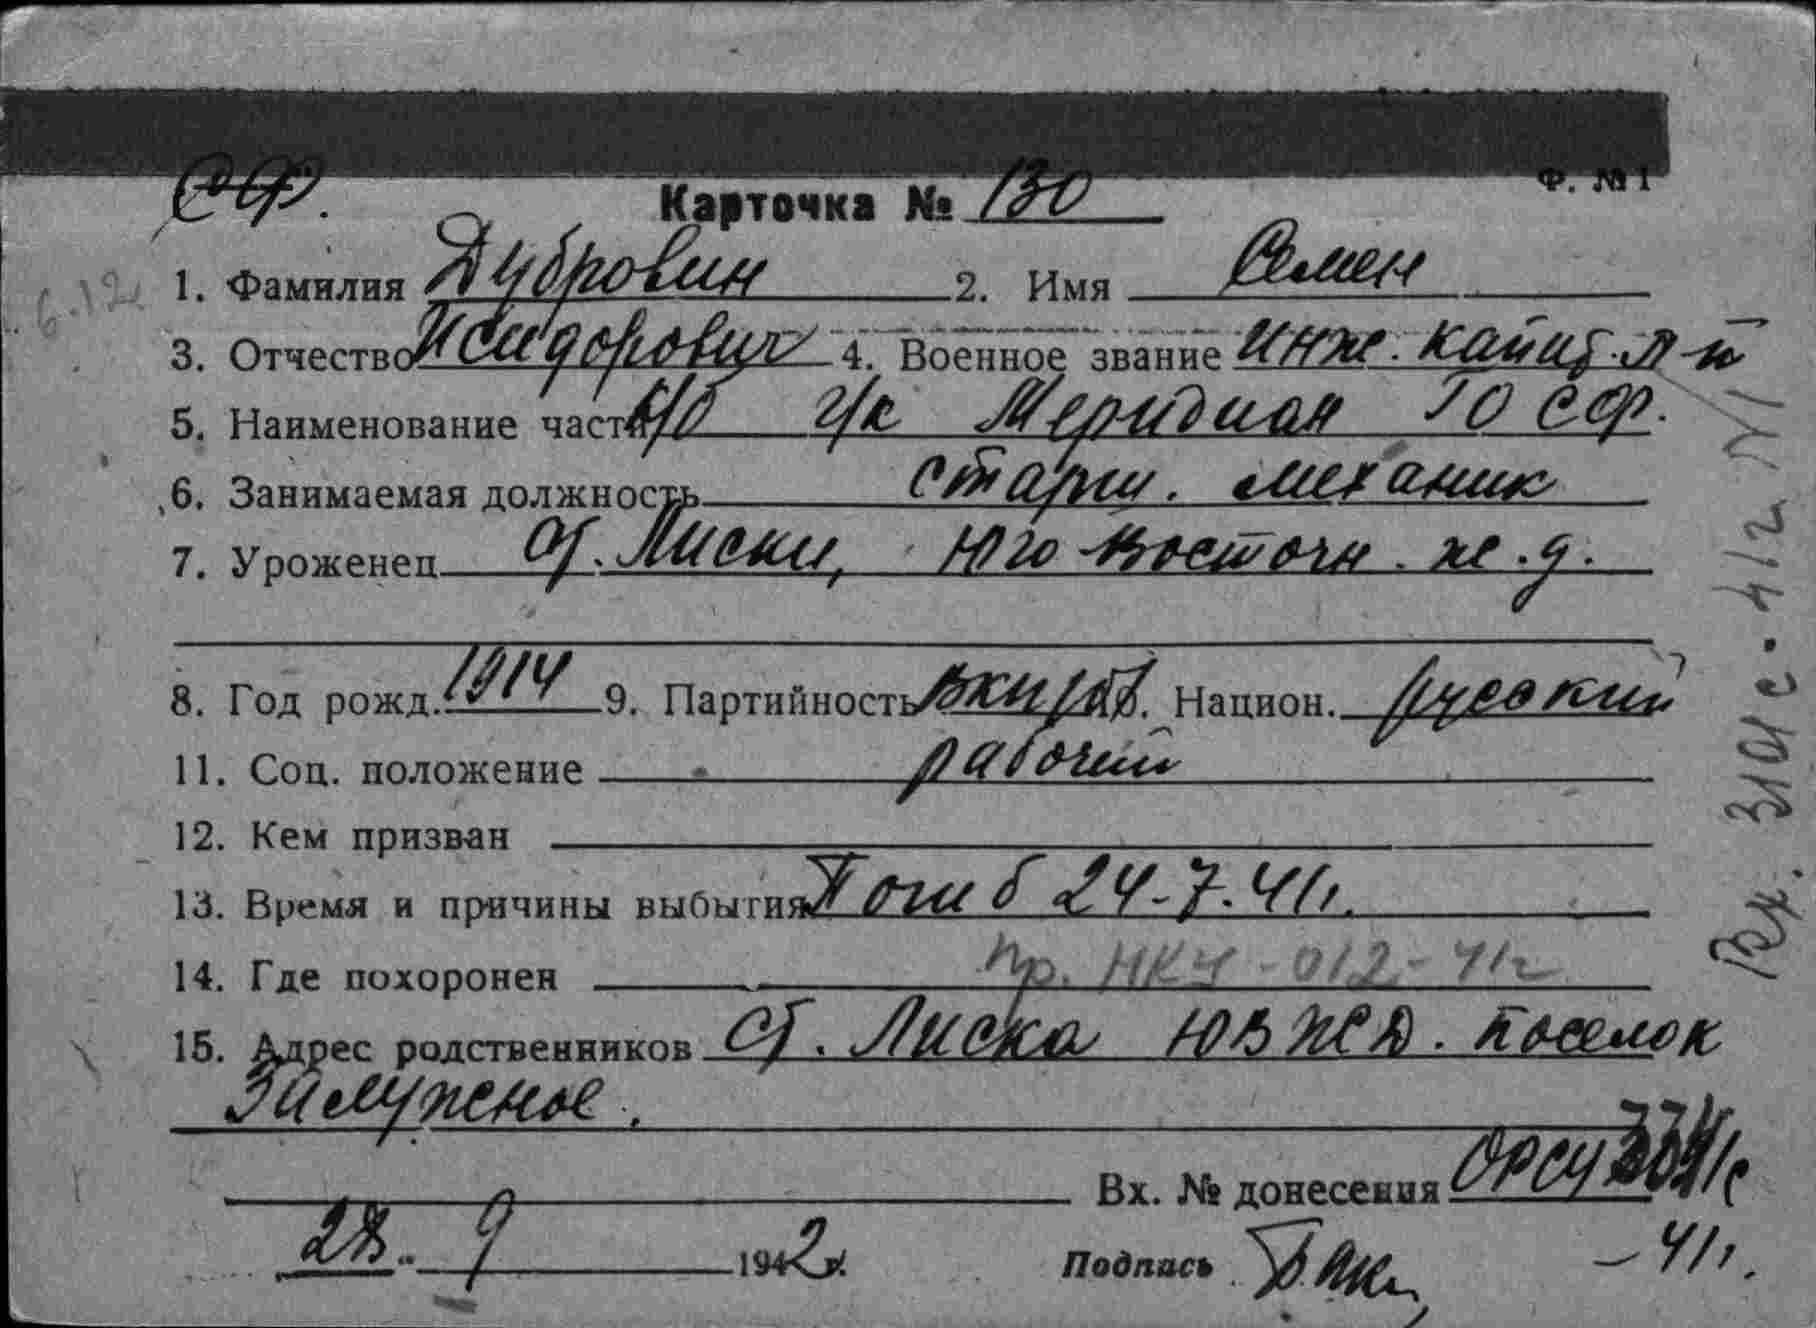 СФ.
Ф. № 1
Карточка № 130
1. Фамилия Дубровин 2. Имя Семен
3. Отчество Исидорович 4. Военное звание инж. капит. л-т
5. Наименование части г/к Меридиан ГО СФ.
6. Занимаемая должность старш. механик
7. Уроженец ст. Лиски, Юго-Восточн. ж. д.
8. Год рожд. 1914 9. Партийность ВКП/б/. Национ. русский
11. Соц. положение рабочий
12. Кем призван
13. Время и причины выбытия Погиб 24-7-41г.
14. Где похоронен Пр. НКУ-012-41г
15. Адрес родственников ст. Лиска ЮВЖД. поселок
Залужное.
Вх. № донесения ОРСУ
-41г.
28. 9 1942г. Подпись